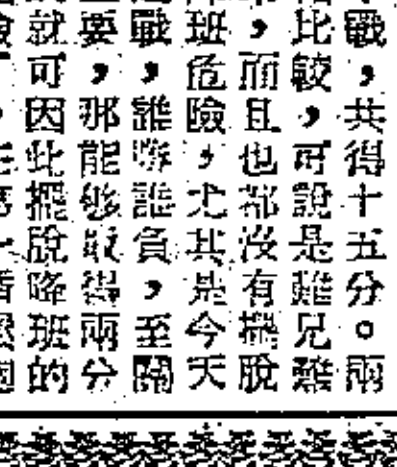 戰，共得十五分。兩
比較，可說是難兄難
，而且也都沒有擺脫
班危險，尤其是今天
戰，誰勝誰負，至關
要，那能够取得兩分
就可因此擺脫降班的